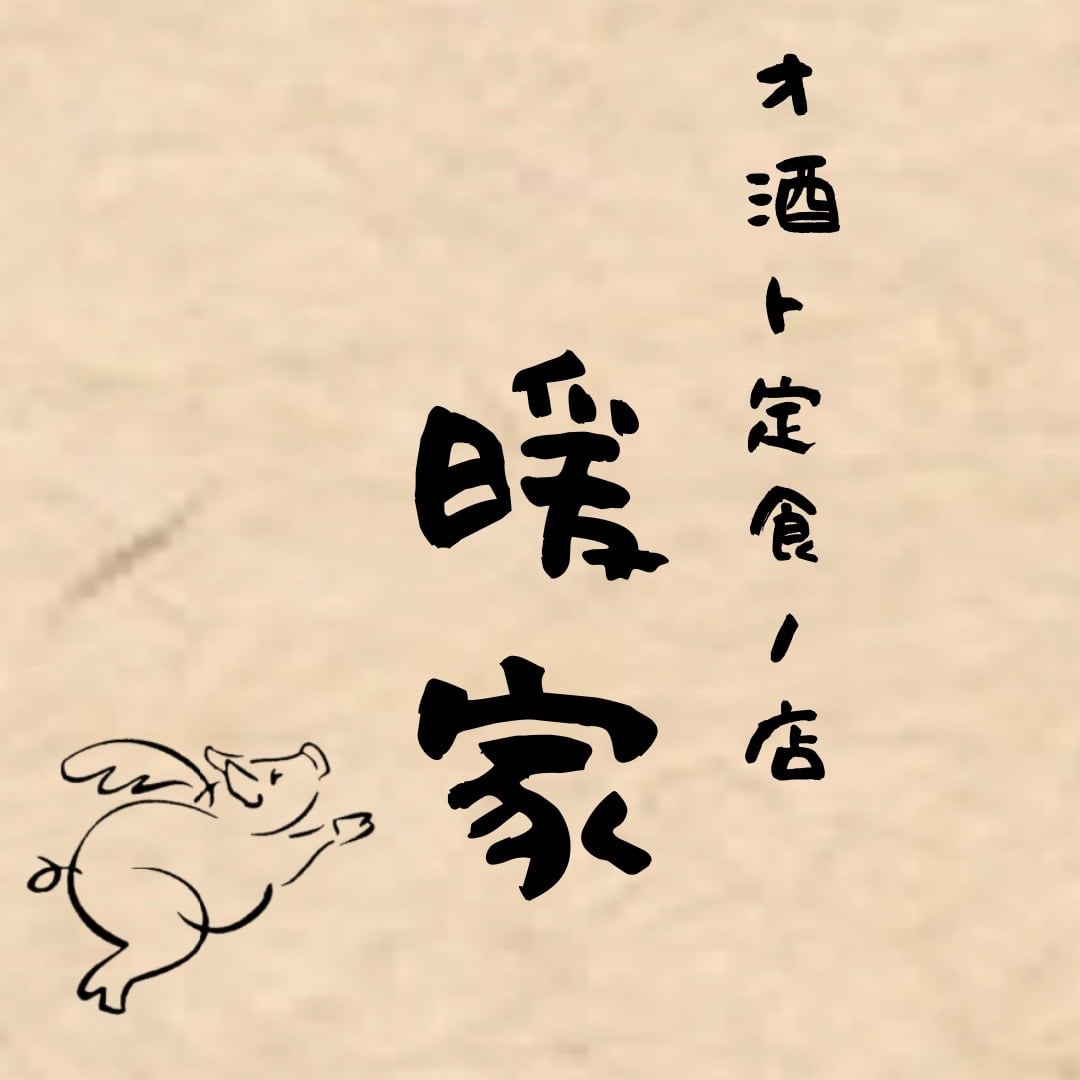 オ酒ト定食ノ店
暖家